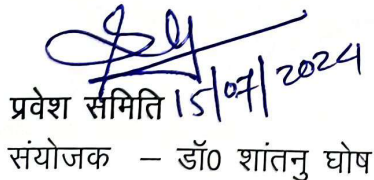 प्रवेश समिति 15/07/2024
संयोजक – डॉ0 शांतनु घोष